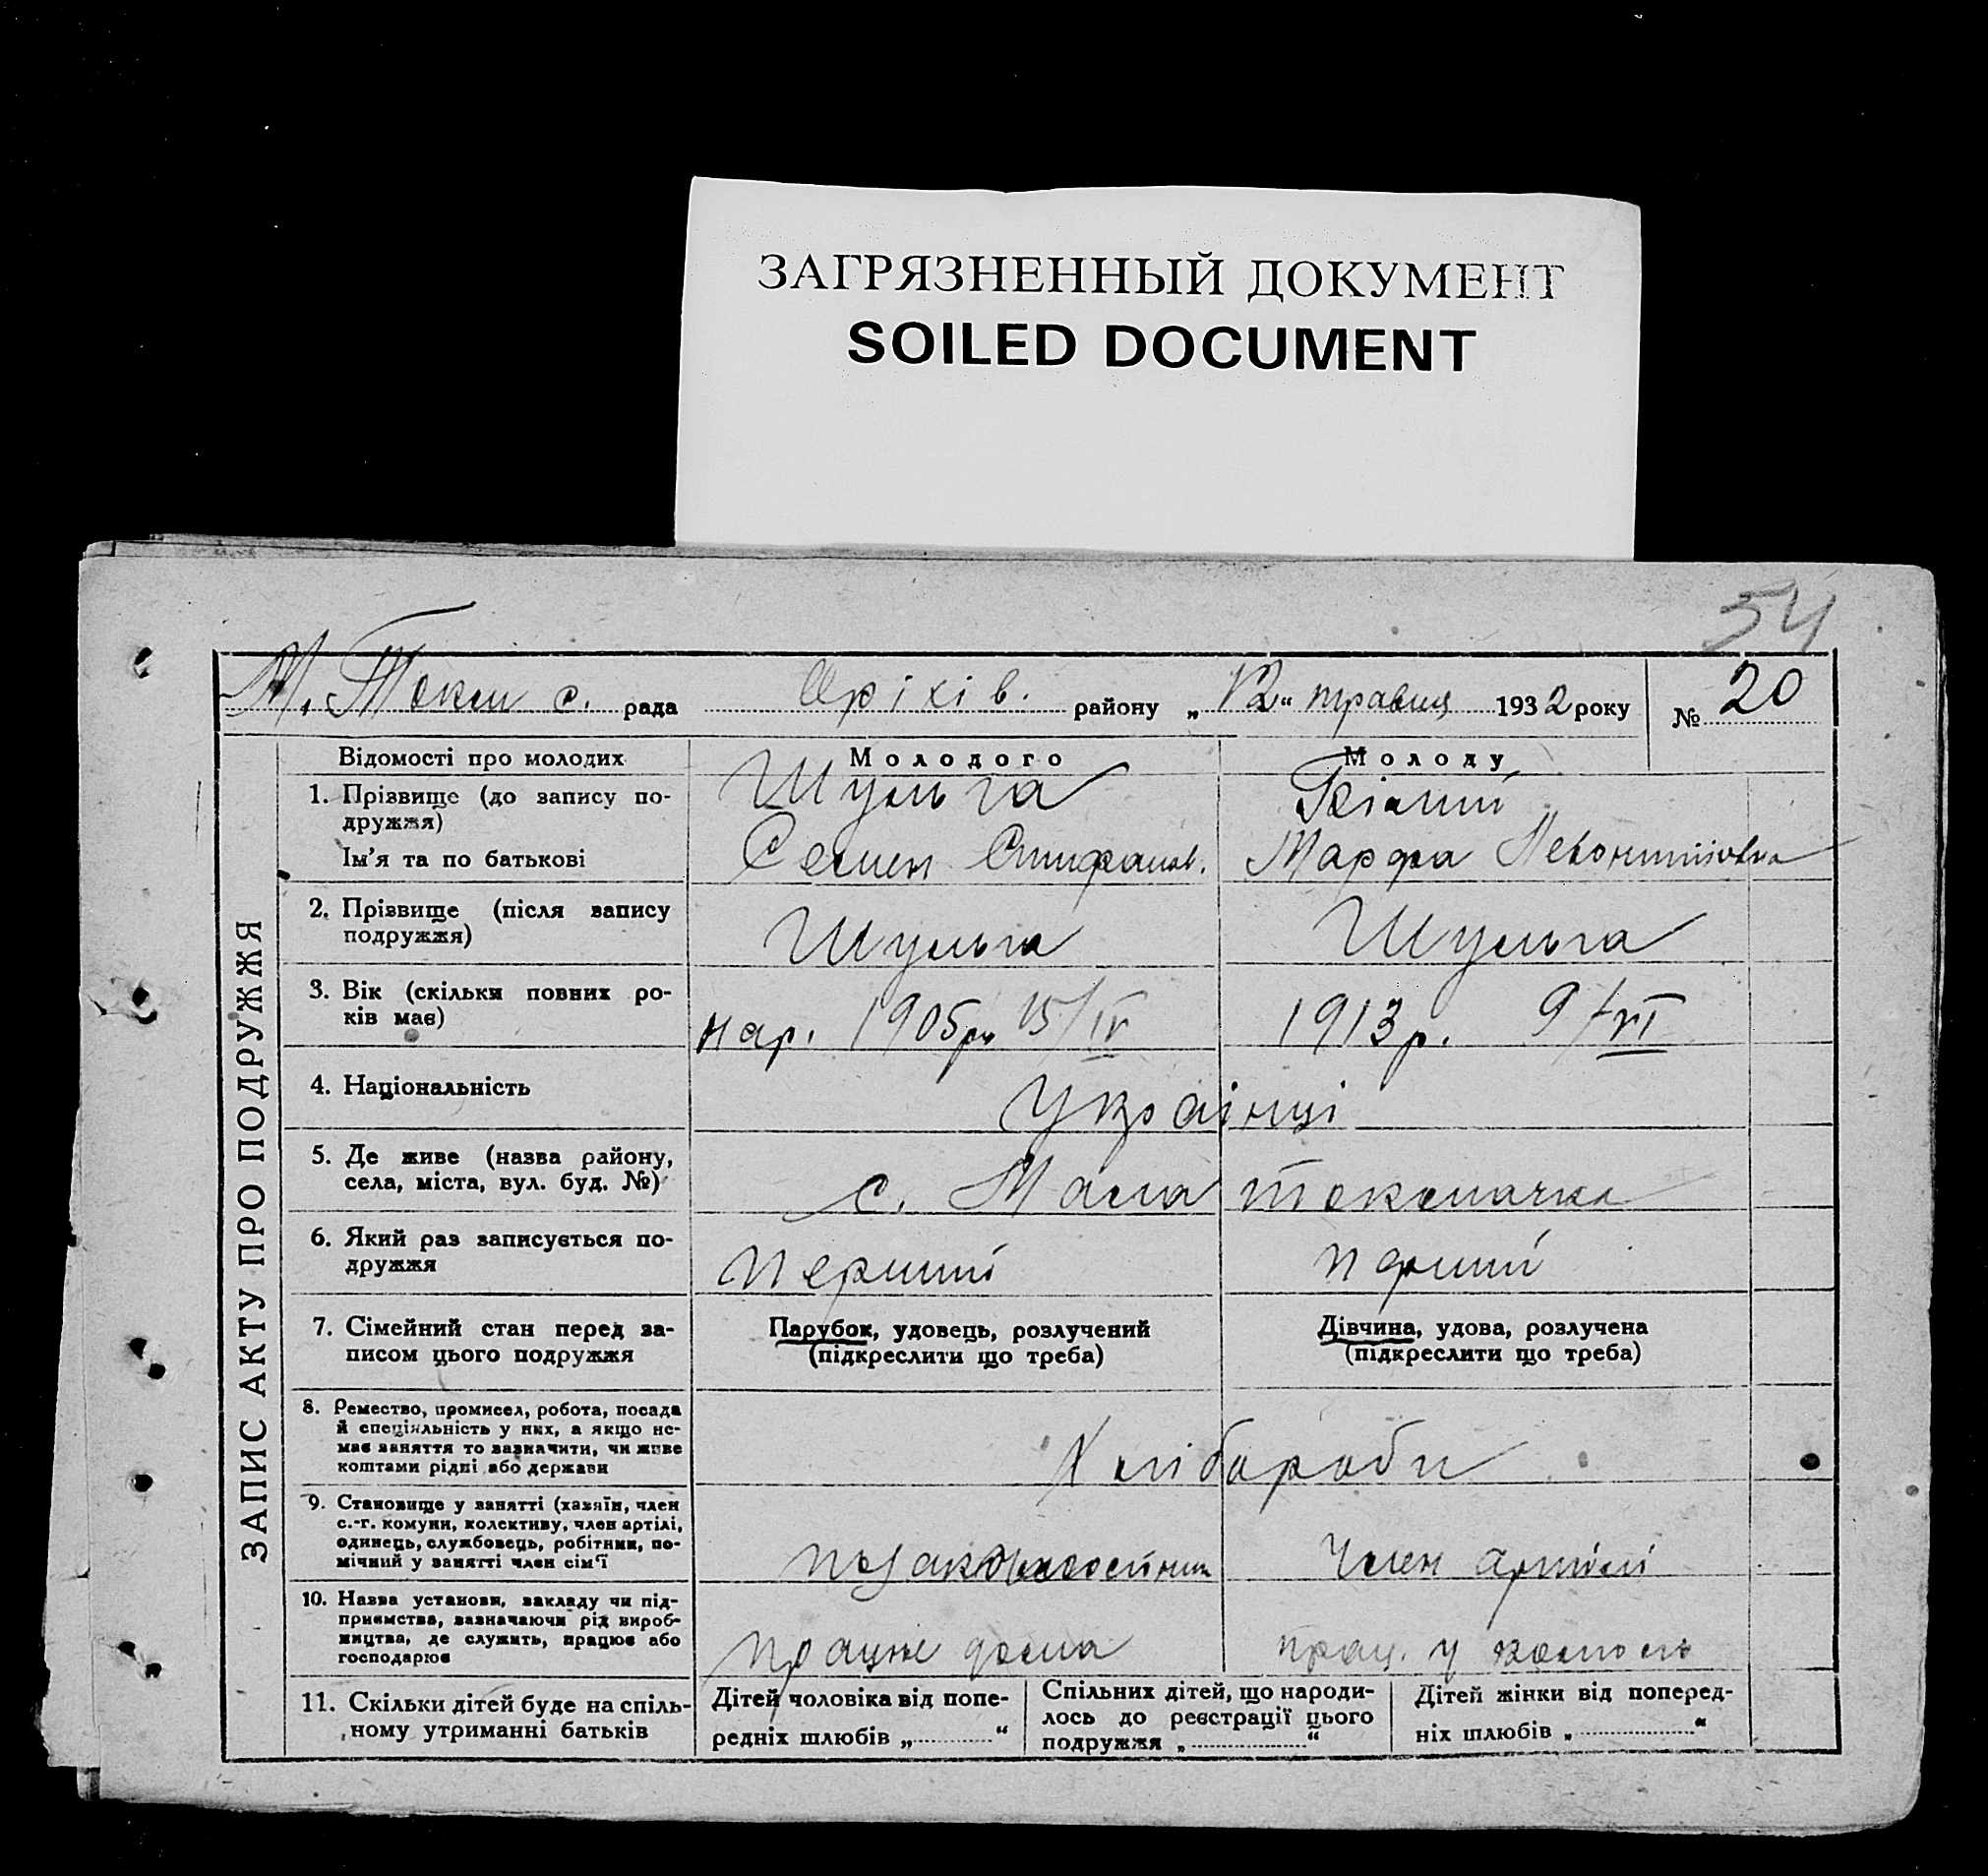 ЗАГРЯЗНЕННЫЙ ДОКУМЕНТ
SOILED DOCUMENT
54
М. Токм с. рада Оріхів. району „12“ травня 1932 року № 20
ЗАПИС АКТУ ПРО ПОДРУЖЖЯ
Відомості про молодих
Молодого
Молоду
1. Прізвище (до запису по-
дружжя)
Шульга
Білий
Ім'я та по батькові
Семен
Марфа
2. Прізвище (після запису
подружжя)
Шульга
Шульга
3. Вік (скільки повних ро-
ків має)
нар. 1905р. 15/IV
1913р. 9/VI
4. Національність
Українці
5. Де живе (назва району,
села, міста, вул. буд. №)
с. Мала токмачка
6. Який раз записується по-
дружжя
перший
перший
7. Сімейний стан перед за-
писом цього подружжя
Парубок, удовець, розлучений
(підкреслити що треба)
Дівчина, удова, розлучена
(підкреслити що треба)
8. Ремество, промисел, робота, посада
й спеціяльність у них, а якщо не-
має заняття то зазначити, чи живе
коштами рідні або держави
Хлібороби
9. Становище у занятті (хазяїн, член
с.-г. комуни, колективу, член артілі,
одинець, службовець, робітник, по-
мічний у занятті член сім'ї
член артілі
10. Назва установи, закладу чи під-
приємства, зазначаючи рід вироб-
ництва, де служить, працює або
господарює
працює дома
прац. у
11. Скільки дітей буде на спіль-
ному утриманні батьків
Дітей чоловіка від попе-
редніх шлюбів „ “
Спільних дітей, що народи-
лось до реєстрації цього
подружжя „ “
Дітей жінки від поперед-
ніх шлюбів „ “